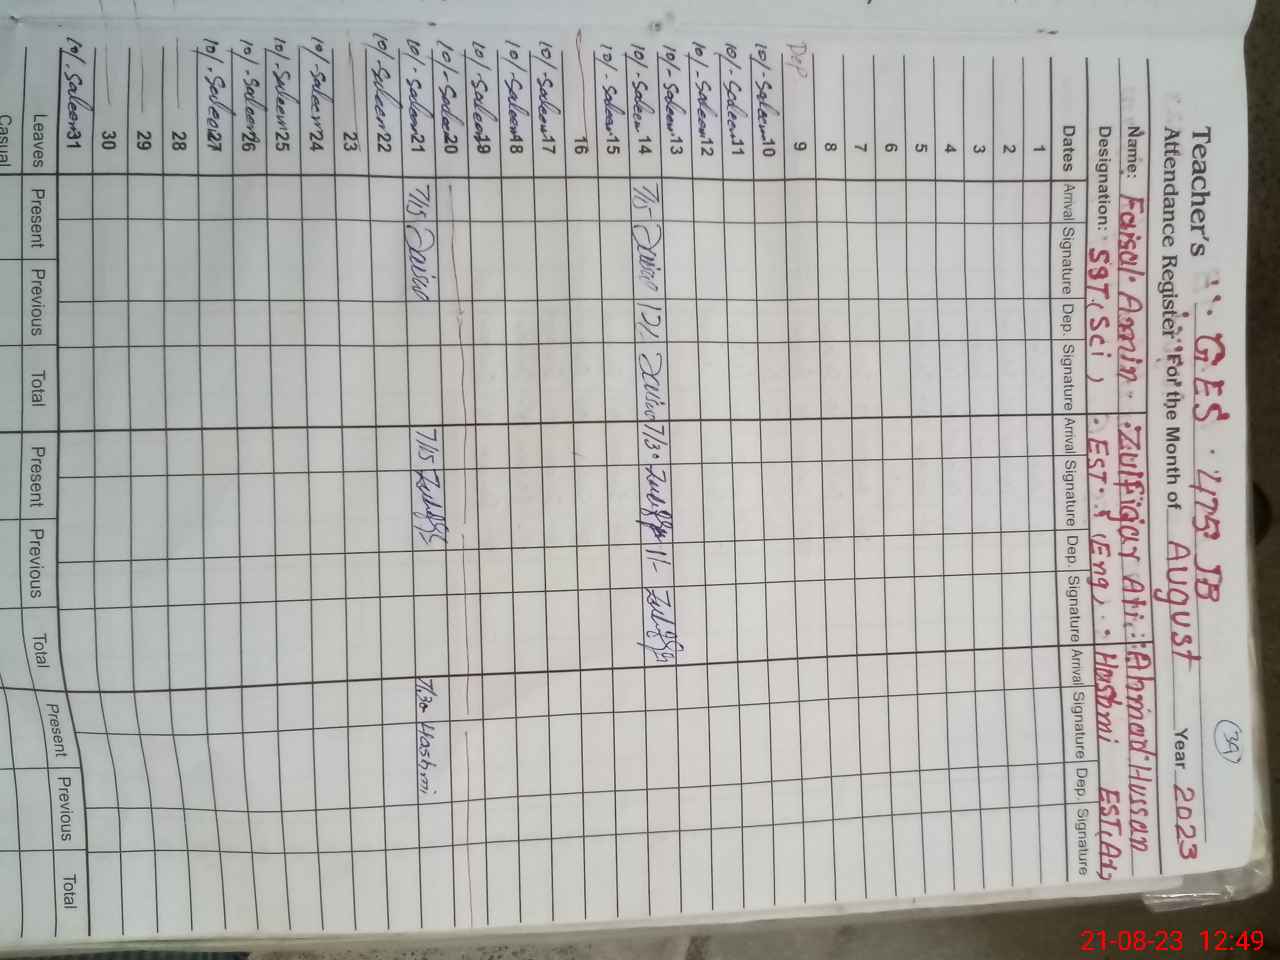 (39)
Teacher's G.E.S. 475 JB
Attendance Register For the Month of August Year 2023
Name: Faisal Amin Zulfiqar Ali Ahmad Hussan
Designation: SST (Sci) EST (Eng) Hashmi EST(A)
Dates Arrival Signature Dep. Signature Arrival Signature Dep. Signature Arrival Signature Dep. Signature
1
2
3
4
5
6
7
8
Dep 9
10/- Saleem 10
10/- Saleem 11
10/- Saleem 12
10/- Saleem 13
10/- Saleem 14 7/15 Faisal 12/ Faisal 7/30 11/-
10/- Saleem 15
16
10/- Saleem 17
10/- Saleem 18
10/- Saleem 19
10/- Saleem 20
10/- Saleem 21 7/15 Faisal 7/15 7.30 Hashmi
10/- Saleem 22
23
10/- Saleem 24
10/- Saleem 25
10/- Saleem 26
10/- Saleem 27
28
29
30
10/- Saleem 31
Leaves Present Previous Total Present Previous Total Present Previous Total
Casual
21-08-23 12:49